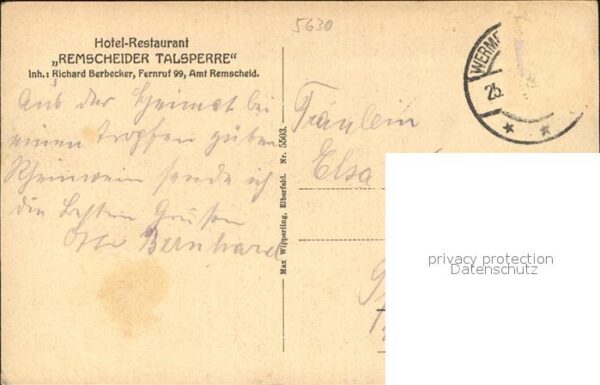 5630
Hotel-Restaurant
„REMSCHEIDER TALSPERRE“
Inh.: Richard Berbecker, Fernruf 99, Amt Remscheid.
Aus der Heimat bei
einem Tropfen guten
Rheinwein sende ich
die besten Grüsse
Bernhard
Max Wipperling, Elberfeld. Nr. 5503.
Fräulein
Elsa
WERME
25.
privacy protection
Datenschutz